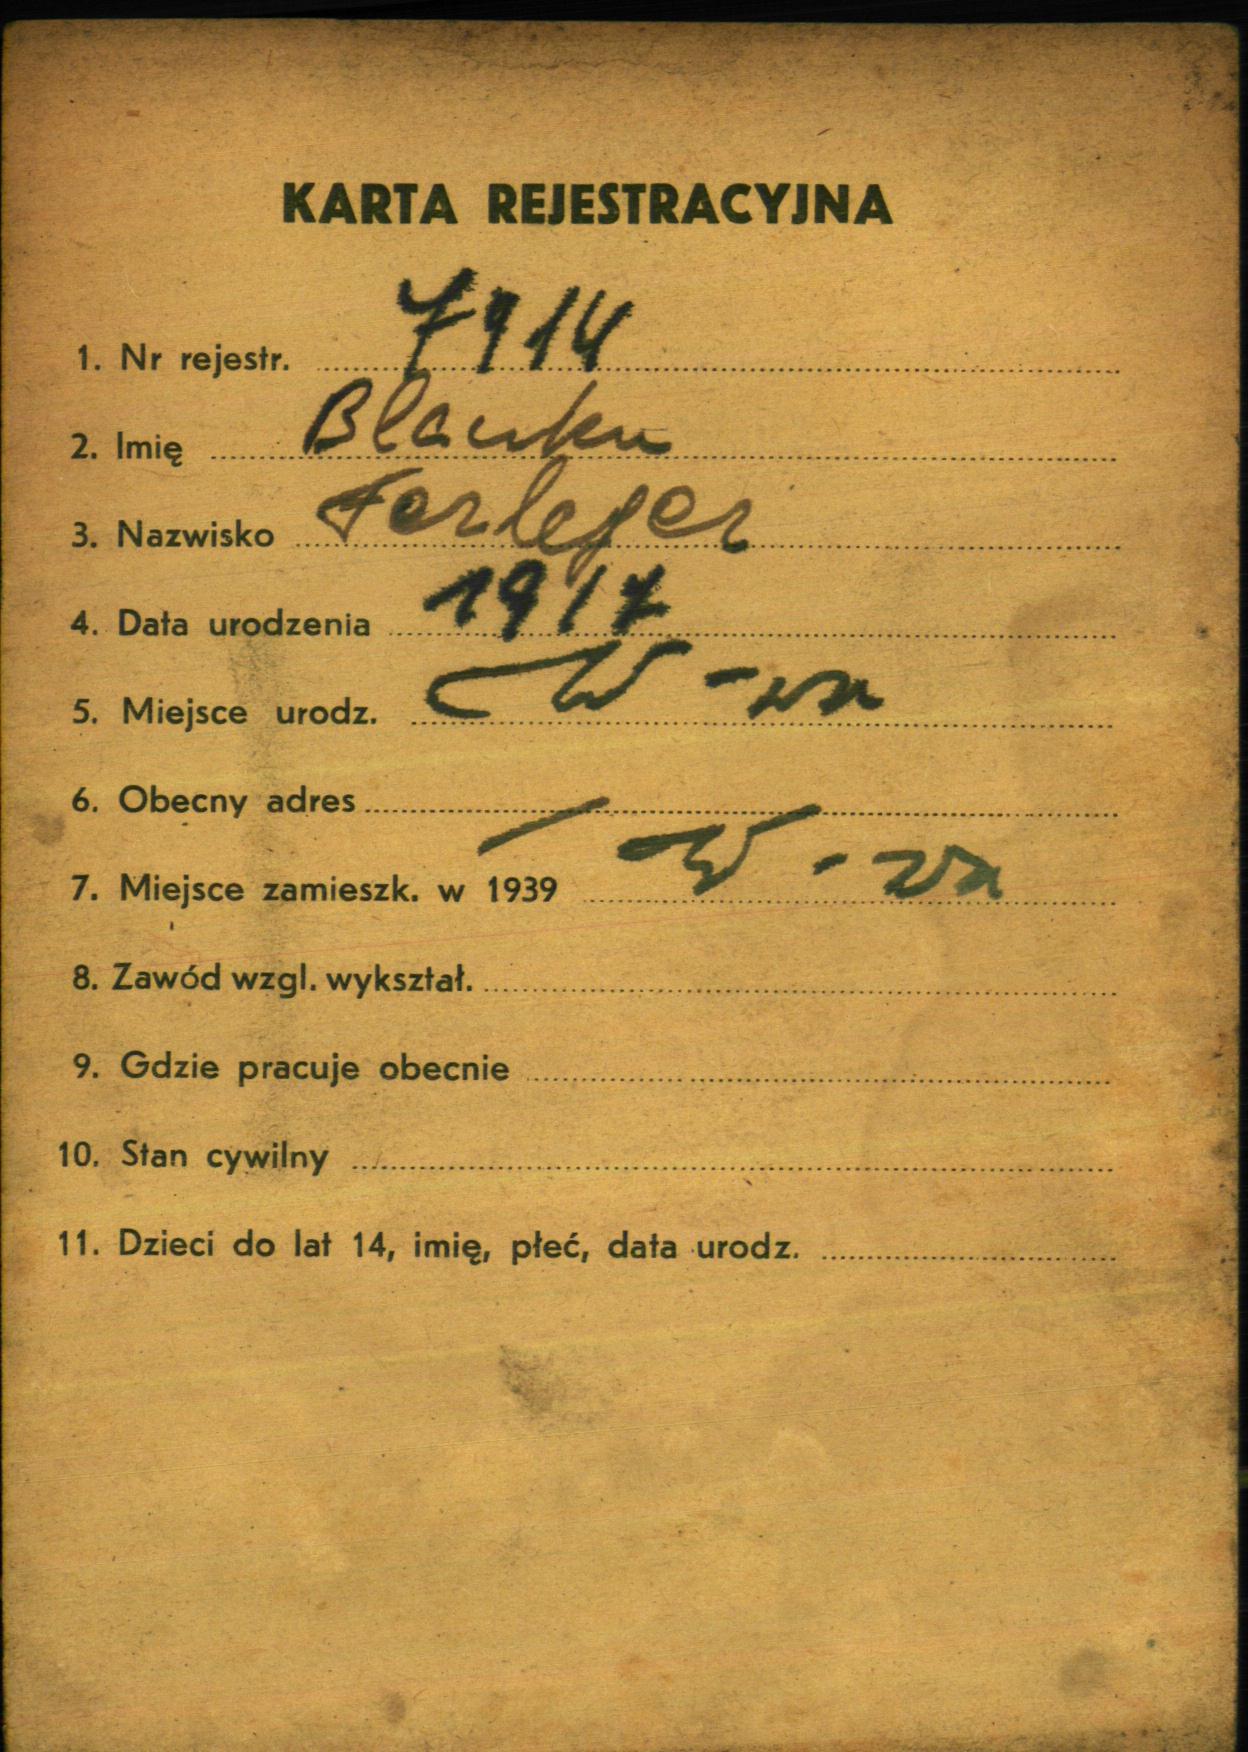 KARTA REJESTRACYJNA
1. Nr rejestr. 7914
2. Imię Blanka
3. Nazwisko Ferleger
4. Data urodzenia 1917
5. Miejsce urodz. W-wa
6. Obecny adres /
7. Miejsce zamieszk. w 1939 W-wa
8. Zawód wzgl. wykształ.
9. Gdzie pracuje obecnie
10. Stan cywilny
11. Dzieci do lat 14, imię, płeć, data urodz.